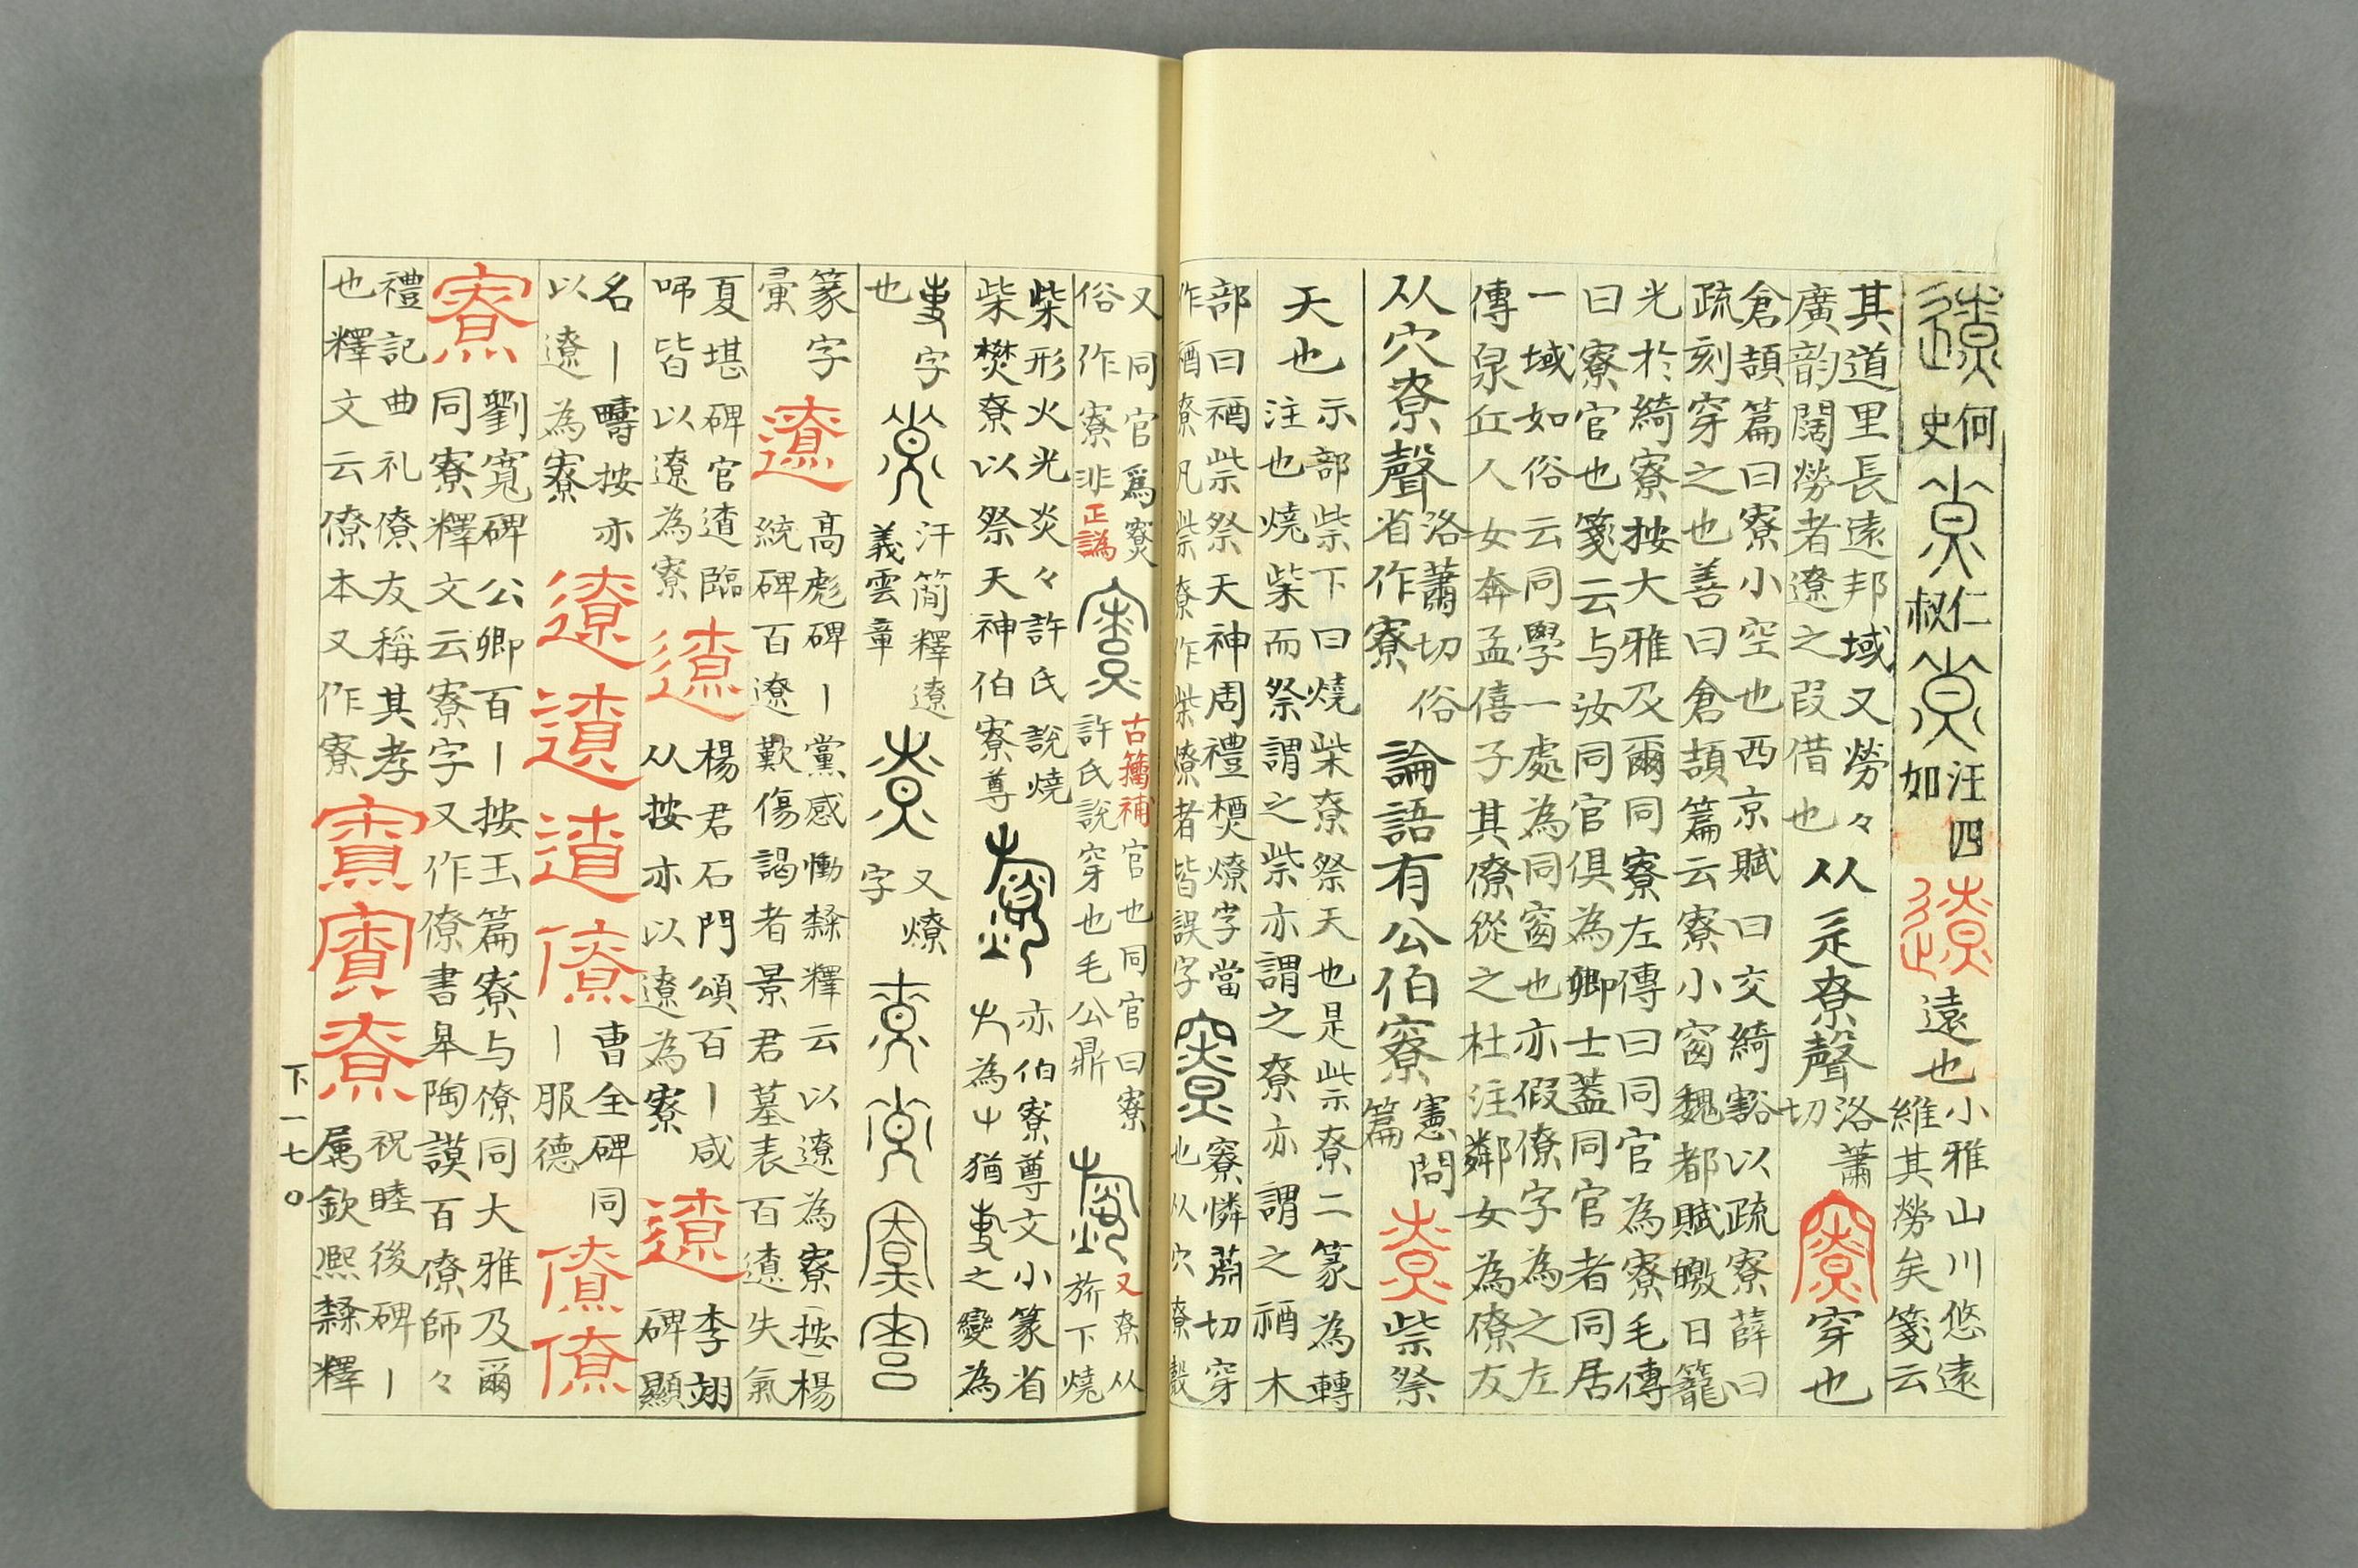 遼何史尞仁叔尞汪如四遼遠也小雅山川悠遠
維其勞矣箋云
其道里長遠邦域又勞々
廣韵闊勞者遼之叚借也
从辵尞聲洛蕭切竂穿也
倉頡篇曰寮小空也西京賦曰交綺豁以疏寮薛曰
疏刻穿之也善曰倉頡篇云寮小窗魏都賦皦日籠
光於綺寮按大雅及爾同寮左傳曰同官為寮毛傳
曰寮官也箋云与汝同官俱為卿士葢同官者同居
一域如俗云同學一處為同窗也亦假僚字為之左
傳泉丘人女奔孟僖子其僚從之杜注鄰女為僚友
从穴尞聲洛蕭切俗
省作寮
論語有公伯寮憲問篇尞祡祭
天也示部祡下曰燒柴尞祭天也是祡尞二篆為轉
注也燒柴而祭謂之祡亦謂之尞亦謂之禉木
部曰禉祡祭天神周禮槱燎字當
作禉尞凡祡尞作柴燎者皆誤字
竂寮憐蕭切穿
也从穴尞聲
又同官爲寮
俗作寮非正譌
古籀補官也同官曰寮
許氏說穿也毛公鼎
又尞从
旂下燒
柴形火光炎々許氏說燒
柴焚尞以祭天神伯寮尊
亦伯寮尊文小篆省
𠂇為屮猶叀之變為
叀字
也
尞汗簡釋遼
義雲章
尞又燎
字
尞尞寮寮
篆字
彙
遼高彪碑〡黨感慟隸釋云以遼為寮按楊
統碑百遼歎傷謁者景君墓表百遼失氣
夏堪碑官遼臨
皆以遼為寮
遼楊君石門頌百〡咸
从按亦以遼為寮
遼李翊
碑顯
名〡疇按亦
以遼為寮
遼遼遼僚曹全碑同
〡服德
僚僚
寮劉寬碑公卿百〡按玉篇寮与僚同大雅及爾
同寮釋文云寮字又作僚書皋陶謨百僚師々
禮記曲礼僚友稱其孝
也釋文云僚本又作寮
寮寮尞祝睦後碑〡
屬欽熙隸釋
下一七〇